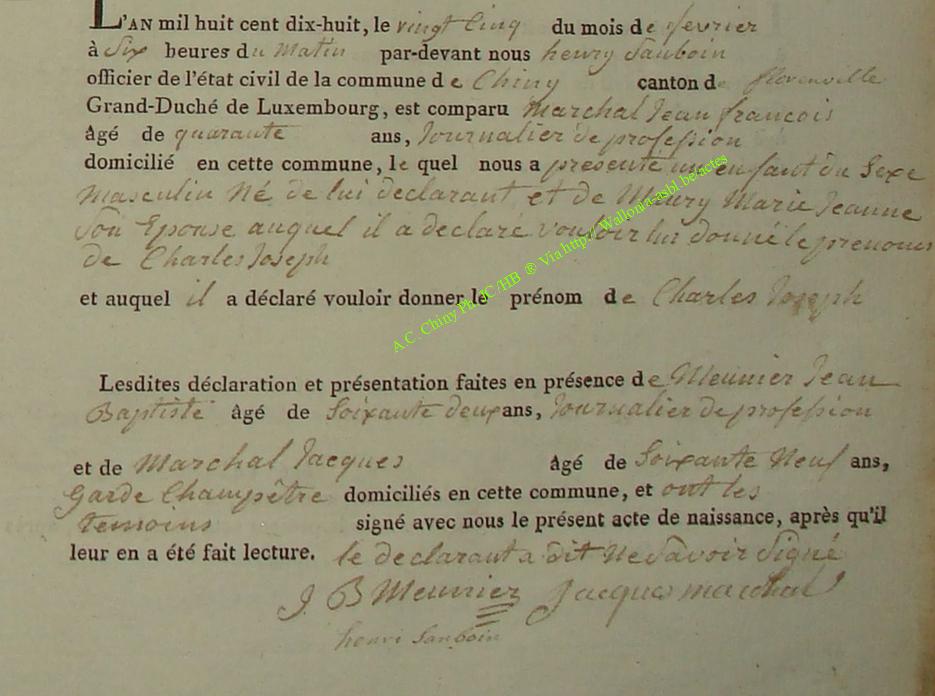 L'AN mil huit cent dix-huit, le vingt Cinq du mois de fevrier
à Six heures du Matin par-devant nous henry Sauboin
officier de l'état civil de la commune de Chiny canton de florenville
Grand-Duché de Luxembourg, est comparu Marchal Jean francois
âgé de quarante ans, Journalier de profession
domicilié en cette commune, le quel nous a présenté un enfant du Sexe
masculin Né de lui déclarant et de Maury Marie Jeanne
Son Epouse auquel il a declaré vouloir lui donné le prenoms
de Charles Joseph
et auquel il a déclaré vouloir donner le prénom de Charles Joseph
A.C. Chiny Ph. JC /HB ® Via http:// Wallonia-asbl.be:actes
Lesdites déclaration et présentation faites en présence de Meunier Jean
Baptiste âgé de Soixante deux ans, Journalier de profession
et de Marchal Jacques âgé de Soixante Neuf ans,
Garde Champêtre domiciliés en cette commune, et ont les
temoins signé avec nous le présent acte de naissance, après qu'il
leur en a été fait lecture. le declarant a dit Ne Savoir Signé
J B Meunier Jacques marchal
henri Sauboin